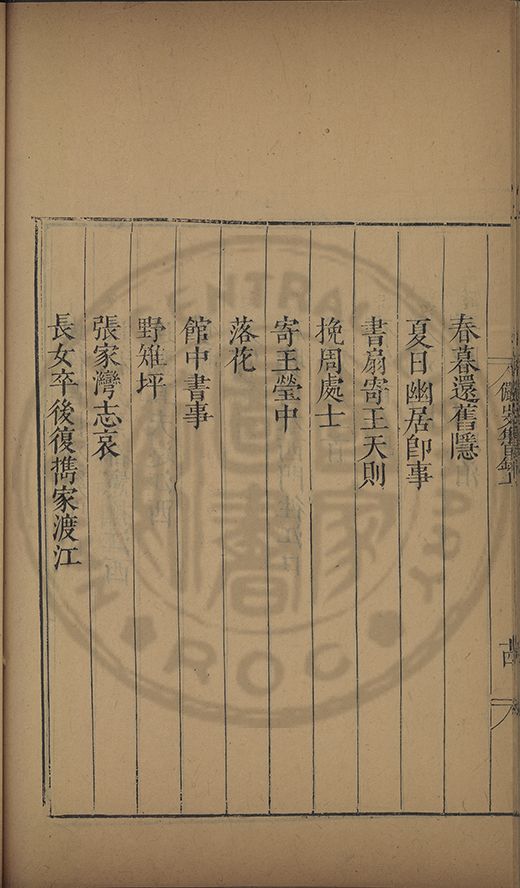 春暮還舊隱
夏日幽居卽事
書扇寄王天則
挽周處士
寄王瑩中
落花
館中書事
野雉坪
張家灣志哀
長女卒後復攜家渡江